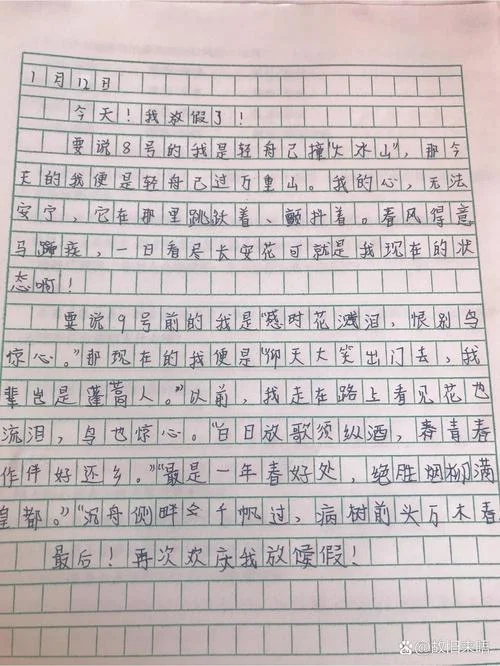 1月12日
今天!我放假了!
要说8号的我是轻舟已撞"大冰山",那今
天的我便是轻舟已过万重山。我的心,无法
安宁,它在那里跳跃着、颤抖着。春风得意
马蹄疾,一日看尽长安花可就是我现在的状
态啊!
要说9号前的我是"感时花溅泪,恨别鸟
惊心。"那现在的我便是"仰天大笑出门去,我
辈岂是蓬蒿人。"以前,我走在路上看见花也
流泪,鸟也惊心。"白日放歌须纵酒,春青春
作伴好还乡。""最是一年春好处,绝胜烟柳满
皇都。""沉舟侧畔千帆过,病树前头万木春
最后!再次欢庆我放假!
@故旧未晤